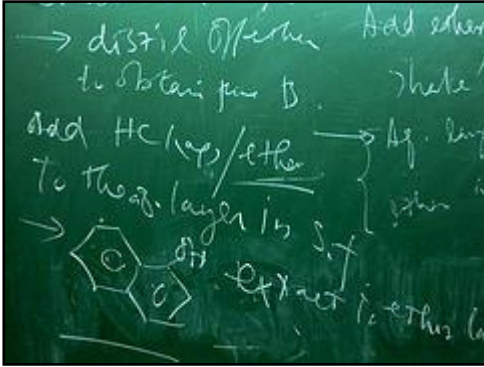 → distil off ether
to obtain pure B.
Add HCl(aq)/ether
To the aq. layer in S.f
→ OH
extract in ether
Add ether
shake
→ Aq. lay
ether